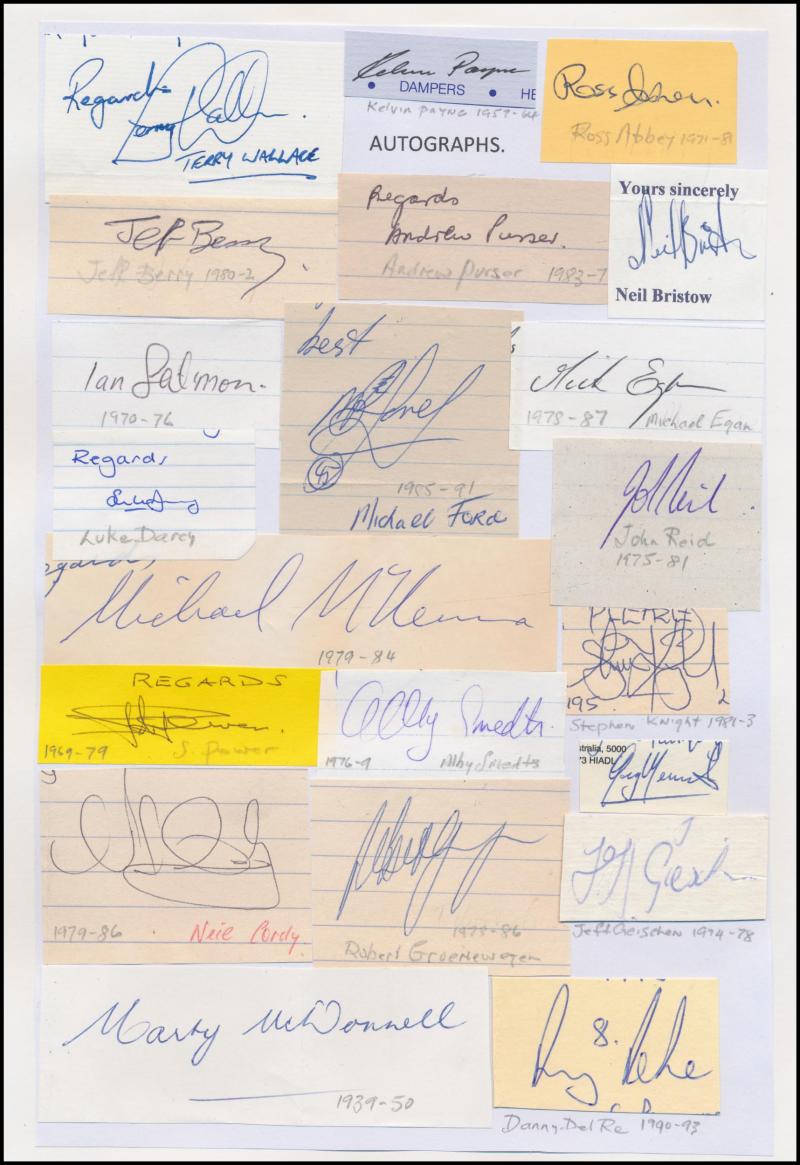 Regards
Terry Wallace
TERRY WALLACE
Kelvin Payne
• DAMPERS • HE
Kelvin Payne 1959-64
AUTOGRAPHS.
Ross Abbey.
Ross Abbey 1971-81
Jeff Berry
Jeff Berry 1980-2
Regards
Andrew Purser.
Andrew Purser 1983-7
Yours sincerely
Neil Bristow
Neil Bristow
Ian Salmon.
1970-76
best
Michael Ford
Mick Egan
1978-87 Michael Egan
Regards
Luke Darcy
John Reid
John Reid
1975-81
Regards,
Michael McKenna
1979-84
PLEASE
195
Stephen Knight
REGARDS
1969-79 S. Power
Ally Smedts
1976-9 Ally Smedts
stralia, 5000
73 HIADL
1979-86 Neil Cordy
Robert Groenewegen
Jeff Gieschen
Jeff Gieschen 1974-78
Marty McDonnell
1939-50
8.
Danny Del Re
Danny Del Re 1990-93